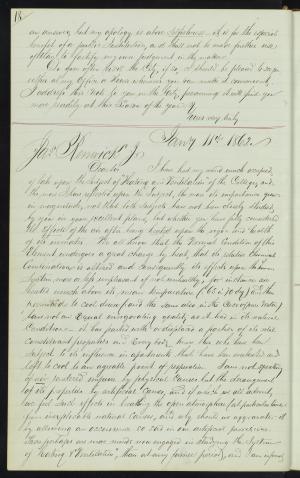 18
any answer, but my apology is above Selfishness as it is for the especial
benefit of a public Institution, and that not to be more further sus-
to fortify my own judgment in the matter.
Do you often the City, if so, I should be pleased to see you
either at my Office or Home whenever you can make it convenient.
I address this note to you in the City, presuming it will find you
more readily at this Season of the year.
Yours very truly
Jany 11th 1862.
Jas. Renwick Jr
Dear Sir
I have my mind much occupied
of late upon the subject of Heating and Ventilation of the College, and
the more I have reflected upon the Subject, the more its importance grows
in magnitude, not that both subjects have not been closely studied,
by you in your excellent plans, but whether you have fully considered
the effects of the air after being heated upon the vigor and health
of its inmates. We all know that the Normal Condition of this
Element undergoes a great change by heat, that its relative Chemical
Combination is altered and Consequently its effects upon the human
System, and a like unpleasant if not unhealthy; for instance air
heated much above its mean temperature of 65 to 70 by Far then
permitted to cool down to the same also in the Case of our Water,
has not an Equal invigorating quality, as it has in its natural
Condition — it has parted with or displaces a portion of its vital
constituent properties and Every body knows this who has been
Subject to its influence in apartments that have been overheated and
left to cool to an agreeable point of respiration. I am not speaking
of air rendered impure by physical Causes but the derangement
of its properties by artificial Causes, and if
we feel such effects in breathing the open atmosphere (at particular times)
from inexplicable natural Causes, and why should we aggravate it
by allowing an occurrence so said in an artificial procedure.
There perhaps are more minds now engaged in studying the System
of Heating & Ventilation, than at any former period, and I am informed